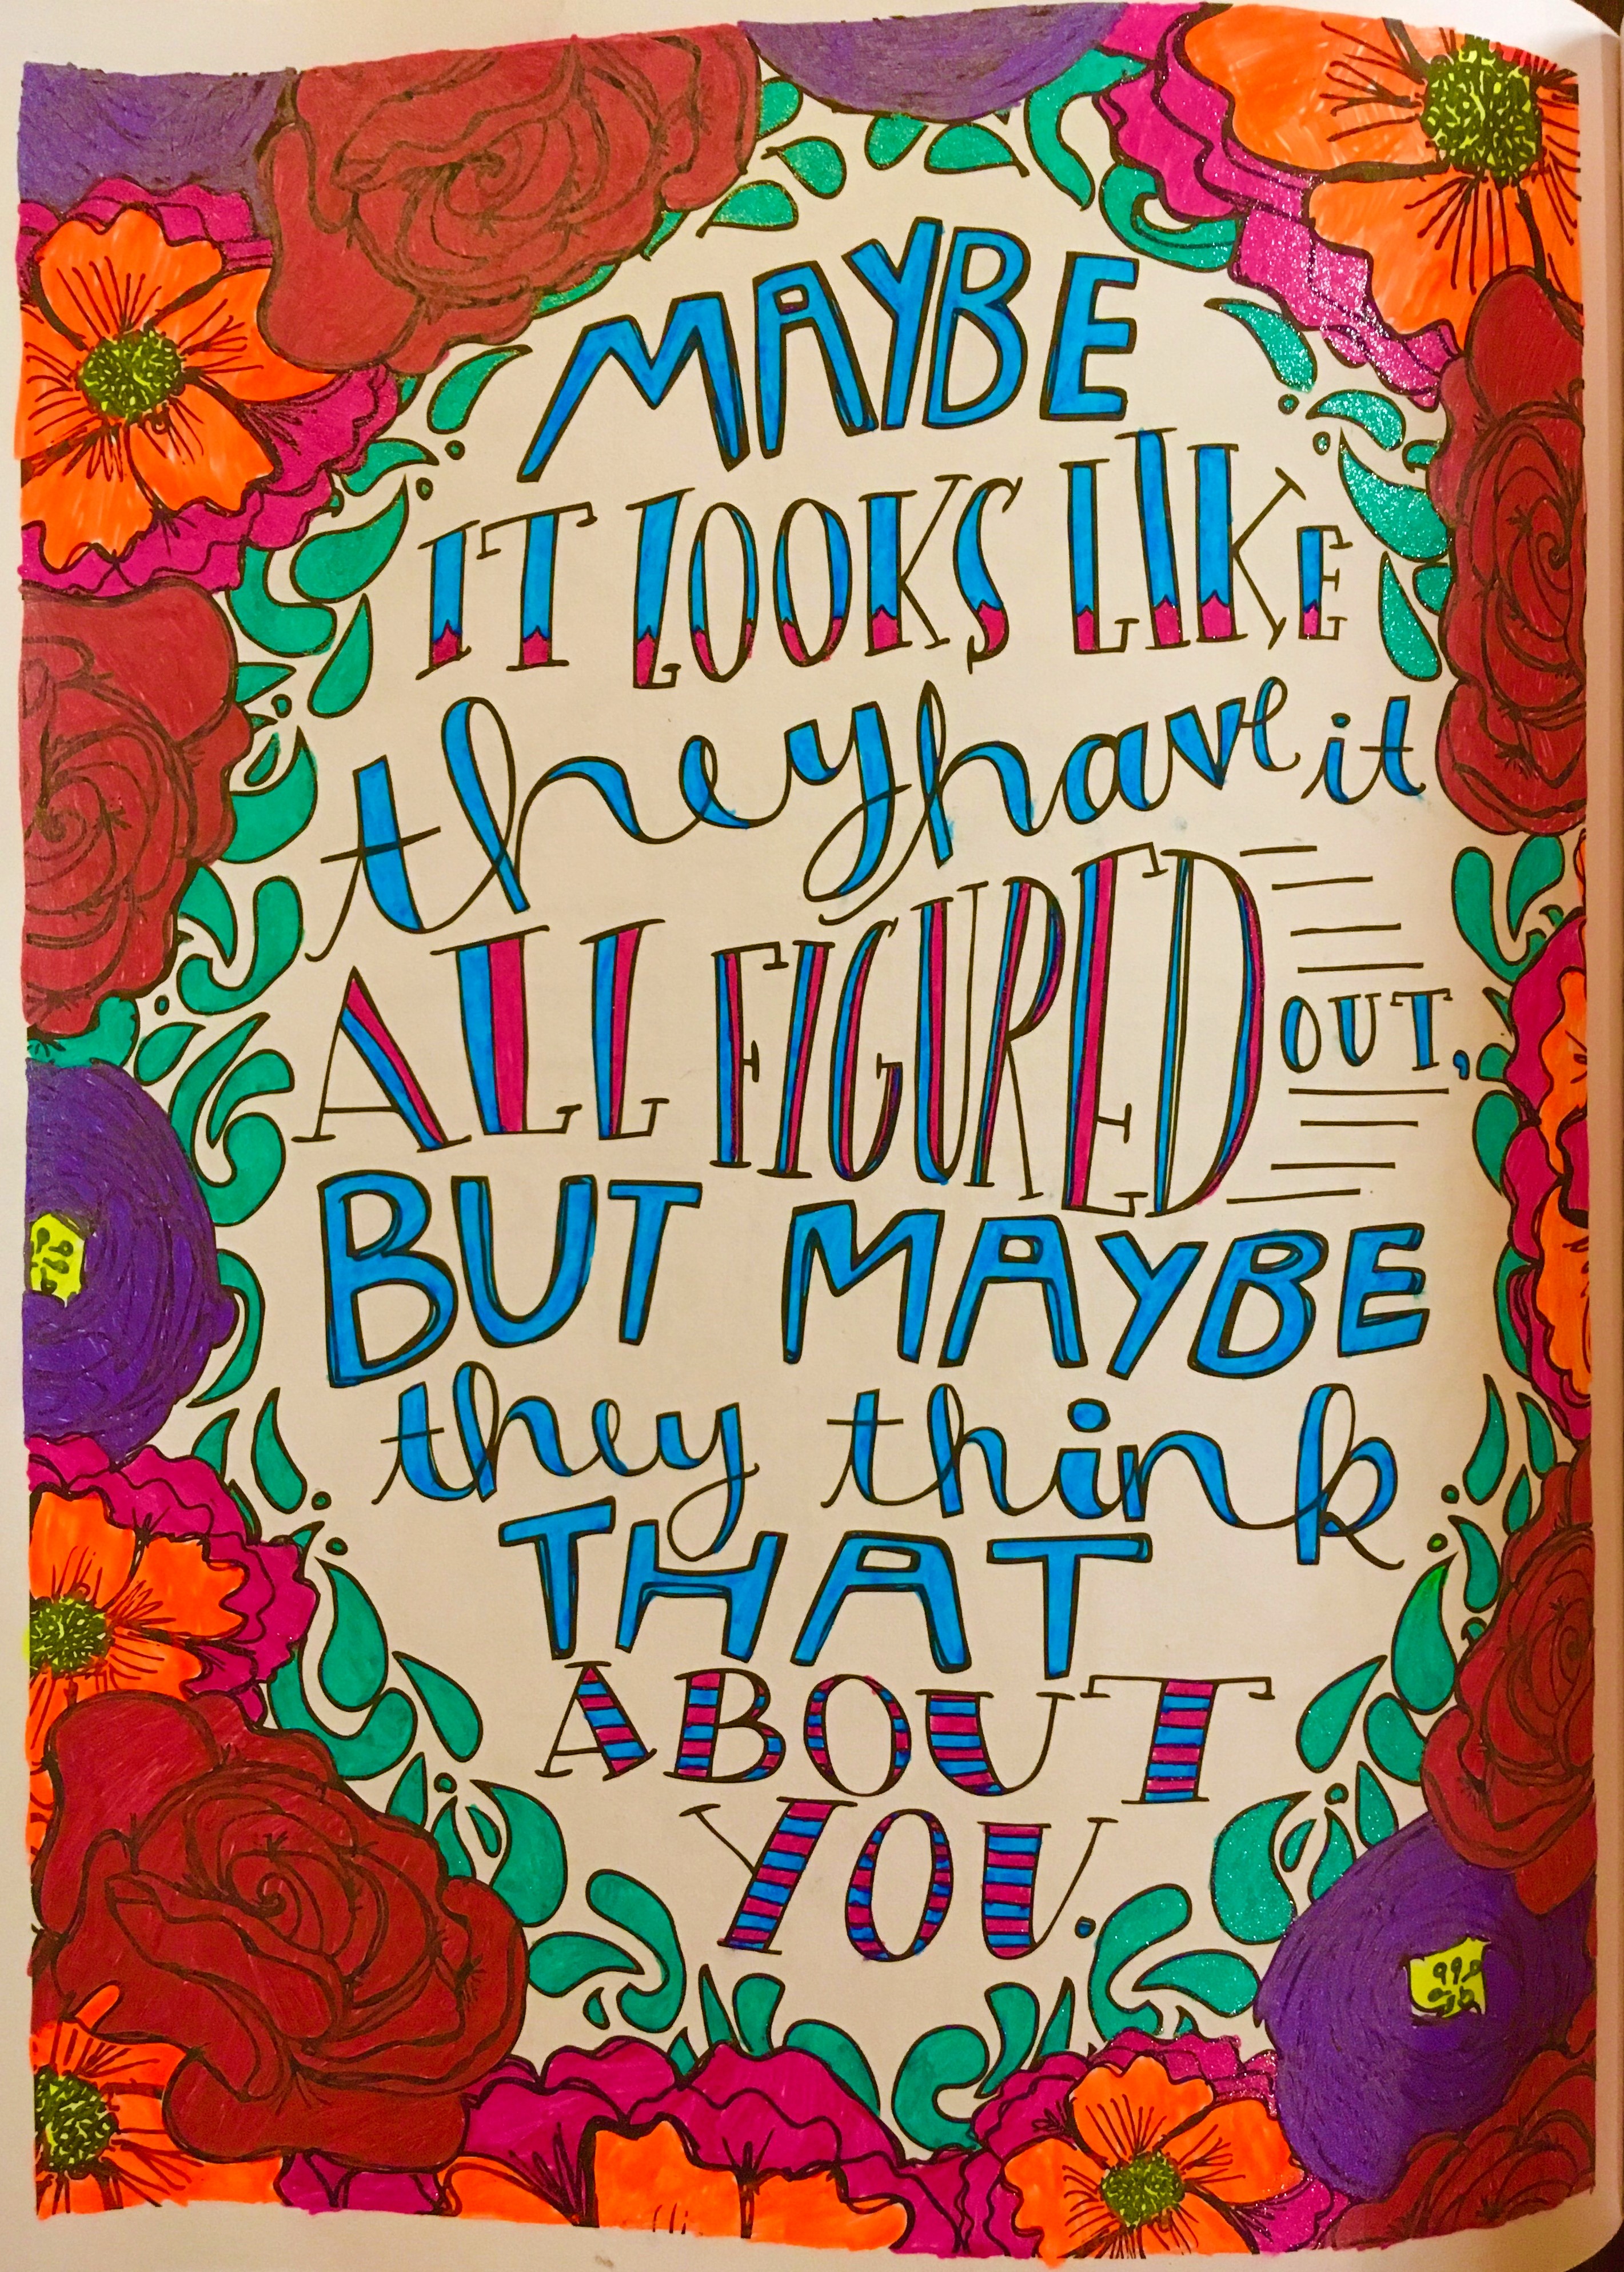 MAYBE
IT LOOKS LIKE
they have it
ALL FIGURED OUT,
BUT MAYBE
they think
THAT
ABOUT
YOU.